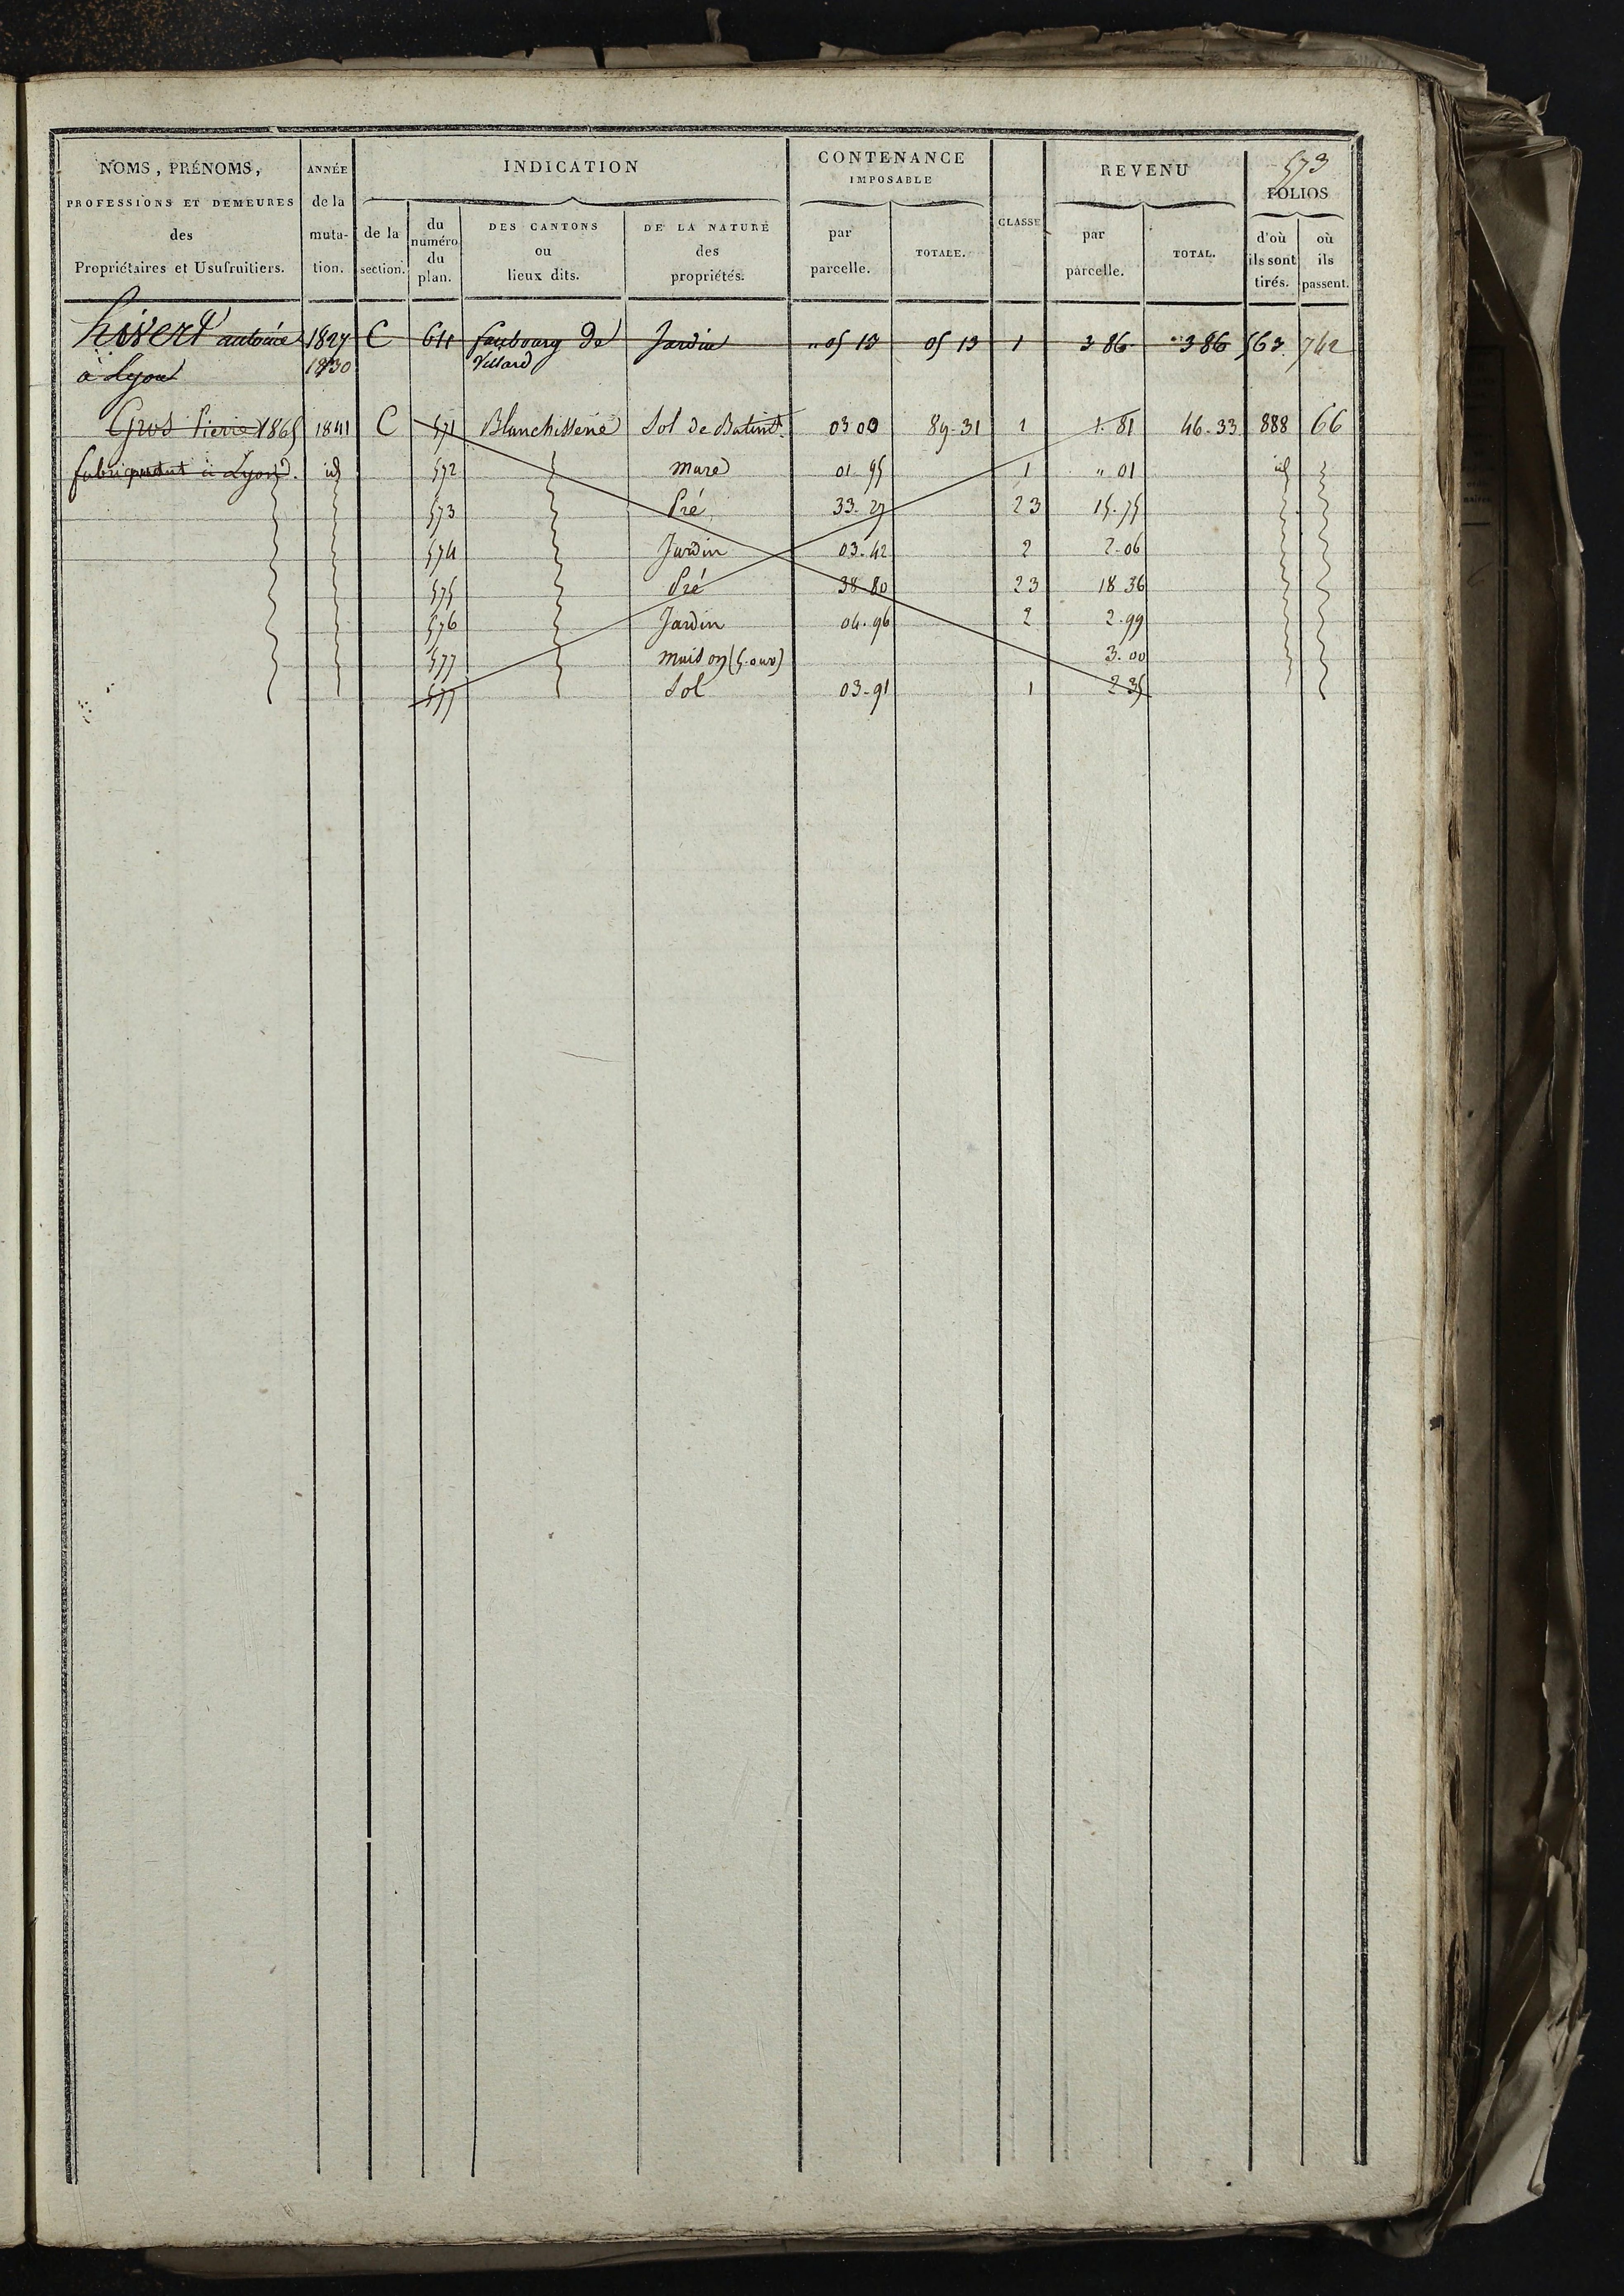 573
NOMS, PRÉNOMS, PROFESSIONS ET DEMEURES des Propriétaires et Usufruitiers.
ANNÉE de la muta- tion.
INDICATION
de la section.
du numéro du plan.
DES CANTONS ou lieux dits.
DE LA NATURE des propriétés.
CONTENANCE IMPOSABLE
par parcelle.
TOTALE.
CLASSE
REVENU
par parcelle.
TOTAL.
FOLIOS
d'où ils sont tirés.
où ils passent.
hivert antoine 1827 C 611 faubourg de Jardin " 05 13 05 13 1 3 86 " 3 86 563 742
à Lyon 1830 Villard
Gros Pierre 1865 1841 C 571 Blanchisserie Sol de Batimt. 03 00 89-31 1 1. 81 46-33 888 66
fabriquant à Lyon. id 572 mare 01-95 1 " 01 id
573 Pré 33-27 23 15-75
574 Jardin 03-42 2 2-06
575 Pré 38-80 23 18-36
576 Jardin 04-96 2 2-99
577 maison (5. ouv) 3-00
577 Sol 03-91 1 2 35